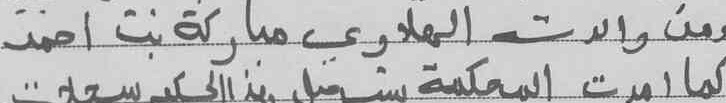 ومن والدته الهلاوي مباركة بنت احمد
كما امرت المحكمة بتسجيل هذا الحكم بسجلات